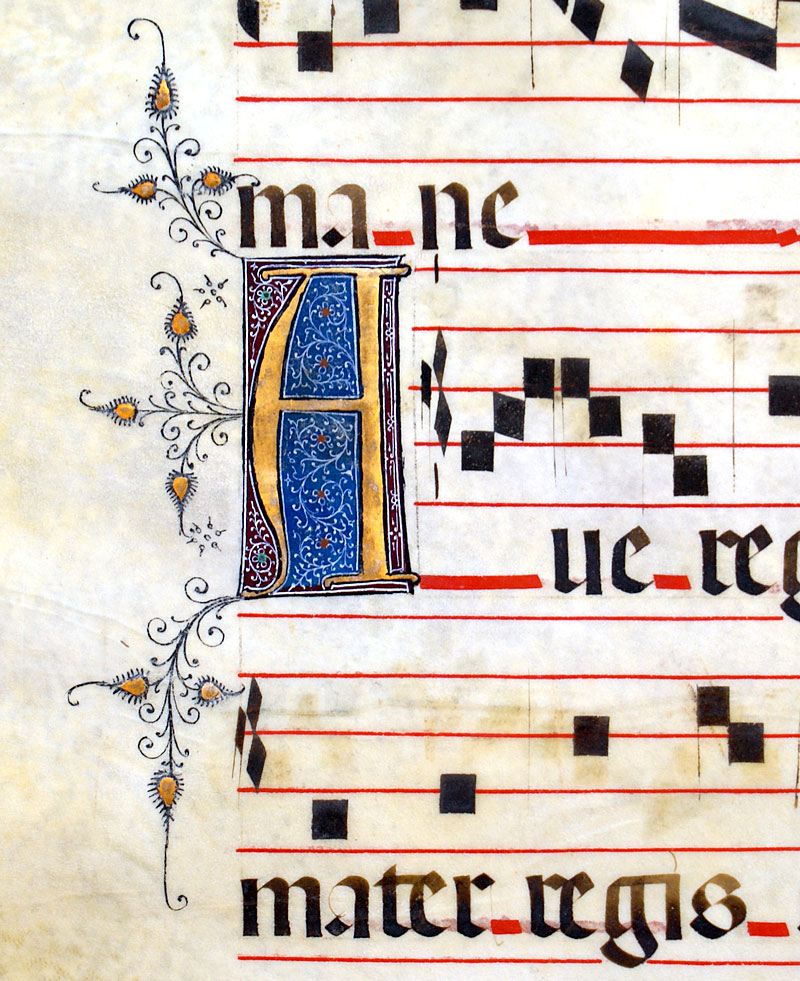 ma ne
A ue reg
mater regis